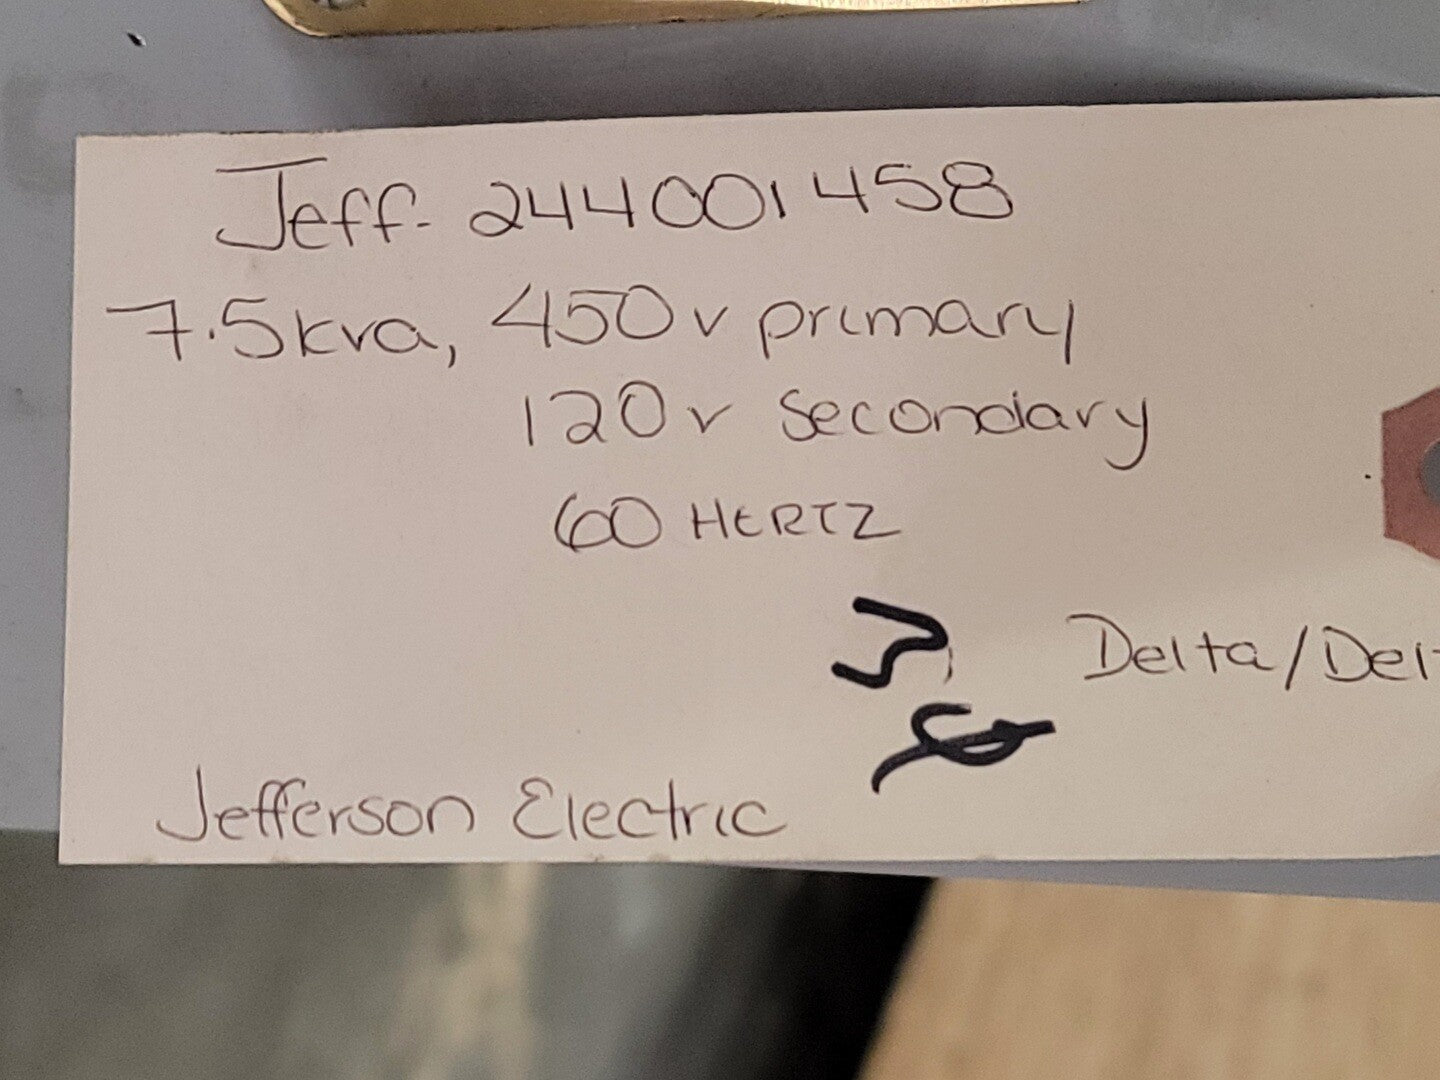 Jeff. 244001458
7.5kva, 450v primary
120v secondary
60 HERTZ
Delta/Del
Jefferson Electric